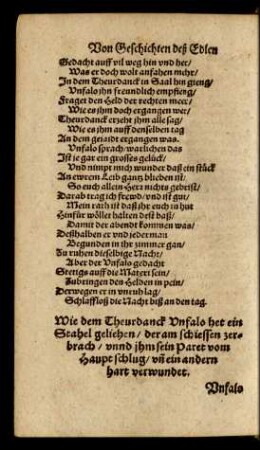 Von Geschichten deß Edlen
Gedacht auff vil weg hin vnd her/
Was er doch wolt anfahen mehr/
In dem Theurdanck in Saal hin gieng/
Vnfalo jhn freundlich empfieng/
Fraget den Held der rechten meer/
Wie es jhm doch ergangen wer/
Theurdanck erzeht jhm alle sag/
Wie es jhm auff denselben tag
An dem geiaidt ergangen was.
Vnfalo sprach/ warlichen das
Ist je gar ein grosses gelück/
Vnd nimpt mich wunder daß ein stück
An ewrem Leib gantz blieben ist/
So euch allein Herz nichts gebrist/
Darab trag ich frewd/ vnd ist gut/
Mein rath ist daß jhr euch in hut
Hinfür wöllet halten dest baß/
Damit der abendt kommen was/
Deßhalben er vnd jederman
Begunden in jhr zimmer gan/
Zu ruhen dieselbige Nacht/
Aber der Vnfalo gedacht
Stetigs auff die Materi sein/
Zubringen den Helden in pein/
Derwegen er in vneub lag/
Schlaffloß die Nacht biß an den tag.
Wie dem Theurdanck Vnfalo het ein
Stahel geliehen/ der am schiessen zer-
brach/ vnnd jhm sein Paret vom
Haupt schlug/ vñ ein andern
hart verwundet.
Vnfalo